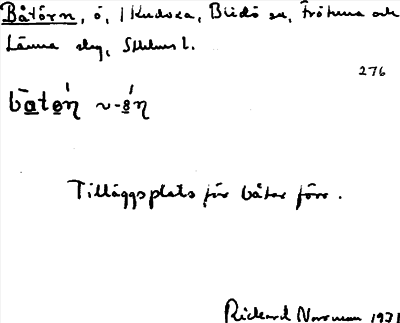 Båtörn, ö, i Kudoxa, Blidö sn, Frötuna och
Länna skg, Sthlms l.
276
Tilläggsplats för båtar förr.
Rickard Norrman 1971